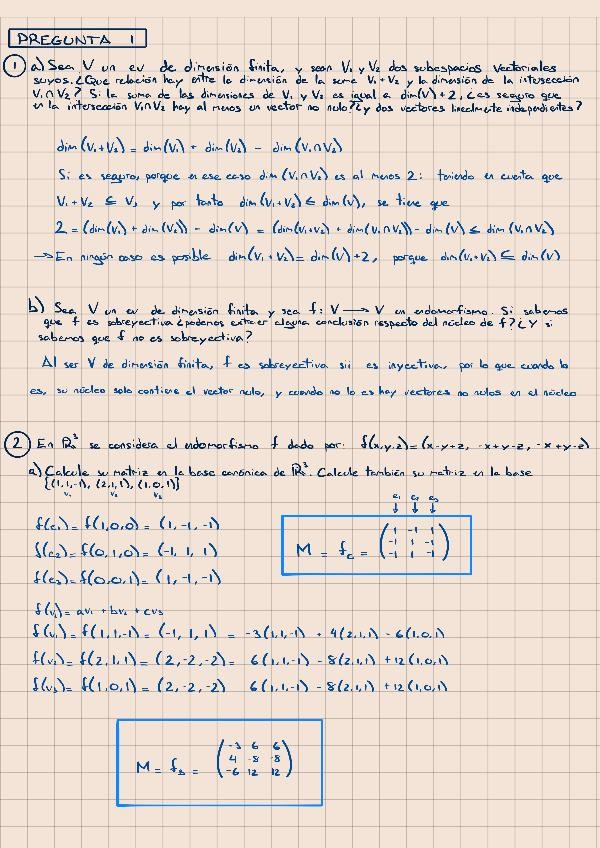 PREGUNTA 1
① a) Sea V un ev de dimensión finita, y sean V₁ y V₂ dos subespacios vectoriales
suyos. ¿Que relación hay entre la dimensión de la suma V₁+V₂ y la dimensión de la intersección
V₁∩V₂? Si la suma de las dimensiones de V₁ y V₂ es igual a dim(V)+2, ¿es seguro que
en la intersección V₁∩V₂ hay al menos un vector no nulo? ¿y dos vectores linealmente independientes?
dim(V₁+V₂) = dim(V₁) + dim(V₂) - dim(V₁∩V₂)
Si es seguro, porque en ese caso dim(V₁∩V₂) es al menos 2: teniendo en cuenta que
V₁+V₂ ⊆ V, y por tanto dim(V₁+V₂) ≤ dim(V), se tiene que
2 = (dim(V₁) + dim(V₂)) - dim(V) = (dim(V₁+V₂) + dim(V₁∩V₂)) - dim(V) ≤ dim(V₁∩V₂)
→ En ningún caso es posible dim(V₁+V₂) = dim(V)+2, porque dim(V₁+V₂) ⊆ dim(V)
b) Sea V un ev de dimensión finita y sea f: V → V un endomorfismo. Si sabemos
que f es sobreyectiva ¿podemos extraer alguna conclusión respecto del núcleo de f? ¿Y si
sabemos que f no es sobreyectiva?
Al ser V de dimensión finita, f es sobreyectiva sii es inyectiva, por lo que cuando lo
es, su núcleo solo contiene el vector nulo, y cuando no lo es hay vectores no nulos en el núcleo
② En ℝ³ se considera el endomorfismo f dado por: f(x,y,z)=(x-y+z, -x+y-z, -x+y-z)
a) Calcule su matriz en la base canónica de ℝ³. Calcule también su matriz en la base
{(1,1,-1), (2,1,1), (1,0,1)}
v₁ v₂ v₃
e₁ e₂ e₃
↓ ↓ ↓
f(e₁) = f(1,0,0) = (1,-1,-1)
f(e₂) = f(0,1,0) = (-1, 1, 1)
f(e₃) = f(0,0,1) = (1,-1,-1)
1 -1 1
M = f_c = -1 1 -1
-1 1 -1
f(v₁) = av₁ + bv₂ + cv₃
f(v₁) = f(1,1,-1) = (-1, 1, 1) = -3(1,1,-1) + 4(2,1,1) - 6(1,0,1)
f(v₂) = f(2,1,1) = (2,-2,-2) = 6(1,1,-1) - 8(2,1,1) + 12(1,0,1)
f(v₃) = f(1,0,1) = (2,-2,-2) 6(1,1,-1) - 8(2,1,1) + 12(1,0,1)
-3 6 6
M = f_B = 4 -8 -8
-6 12 12